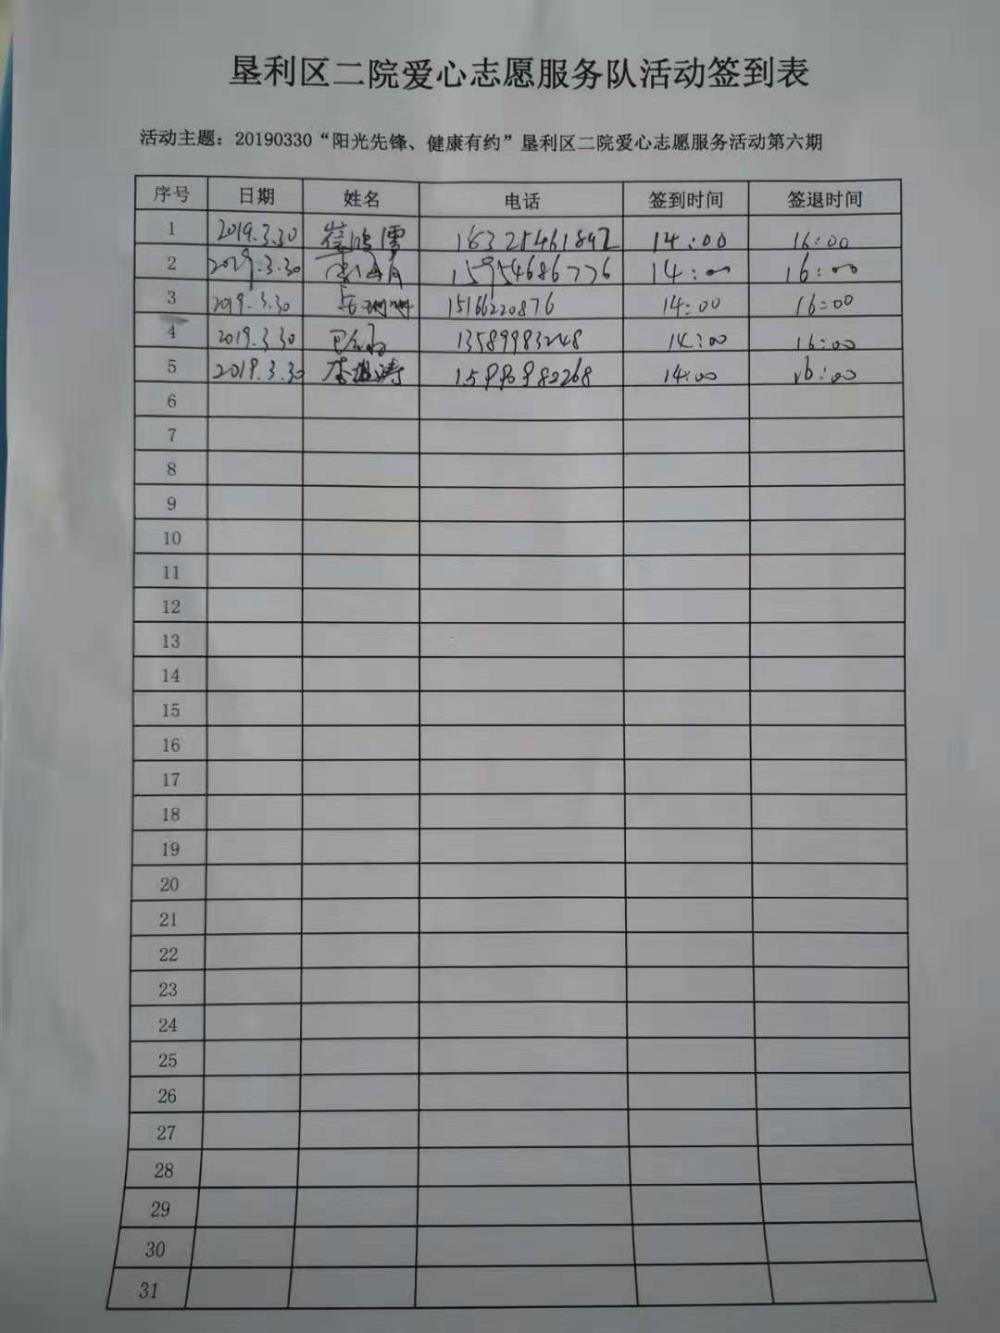 垦利区二院爱心志愿服务队活动签到表
活动主题：20190330“阳光先锋、健康有约”垦利区二院爱心志愿服务活动第六期
序号 日期 姓名 电话 签到时间 签退时间
1 2019.3.30 14:00 16:00
2 2019.3.30 15954686776 14:00 16:00
3 2019.3.30 15166220876 14:00 16:00
4 2019.3.30 13589983248 14:00 16:00
5 2019.3.30 14:00 16:00
6
7
8
9
10
11
12
13
14
15
16
17
18
19
20
21
22
23
24
25
26
27
28
29
30
31